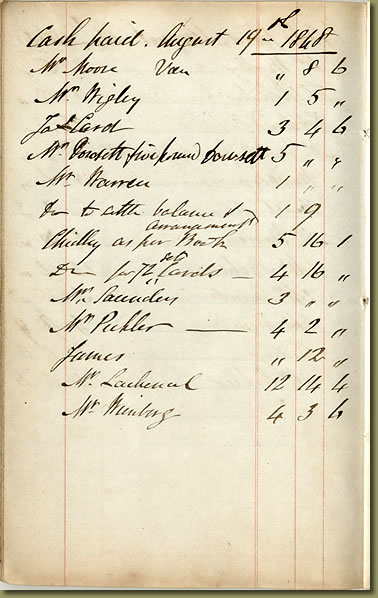 Cash paid. August 19th 1848
Mr Moore Van " 8 6
Mr Wigley 1 5 "
Jas Card 3 4 6
Mr Dowsett five pound Dowsett 5 " "
Mr Warren 1 " "
Do to balance & 1 9
arrangement
Chidley as per Book 5 16 1
Do for 72 Cards — 4 16 "
Mr Saunders 3 " "
Mr Pickler — 4 2 "
James " 12 "
Mr Lachenal 12 14 4
Mr Weinberg 4 3 6